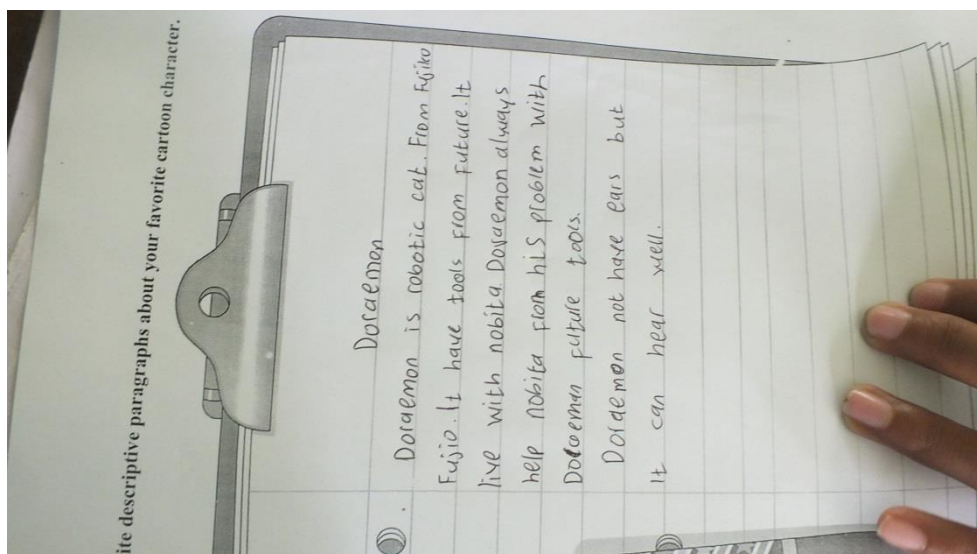 ite descriptive paragraphs about your favorite cartoon character.
Doraemon
Doraemon is robotic cat. From Fujiko
Fujio. It have tools from future. It
live with nobita Doraemon always
help nobita from his problem with
Doraeman future tools.
Doraemon not have ears but
It can hear well.